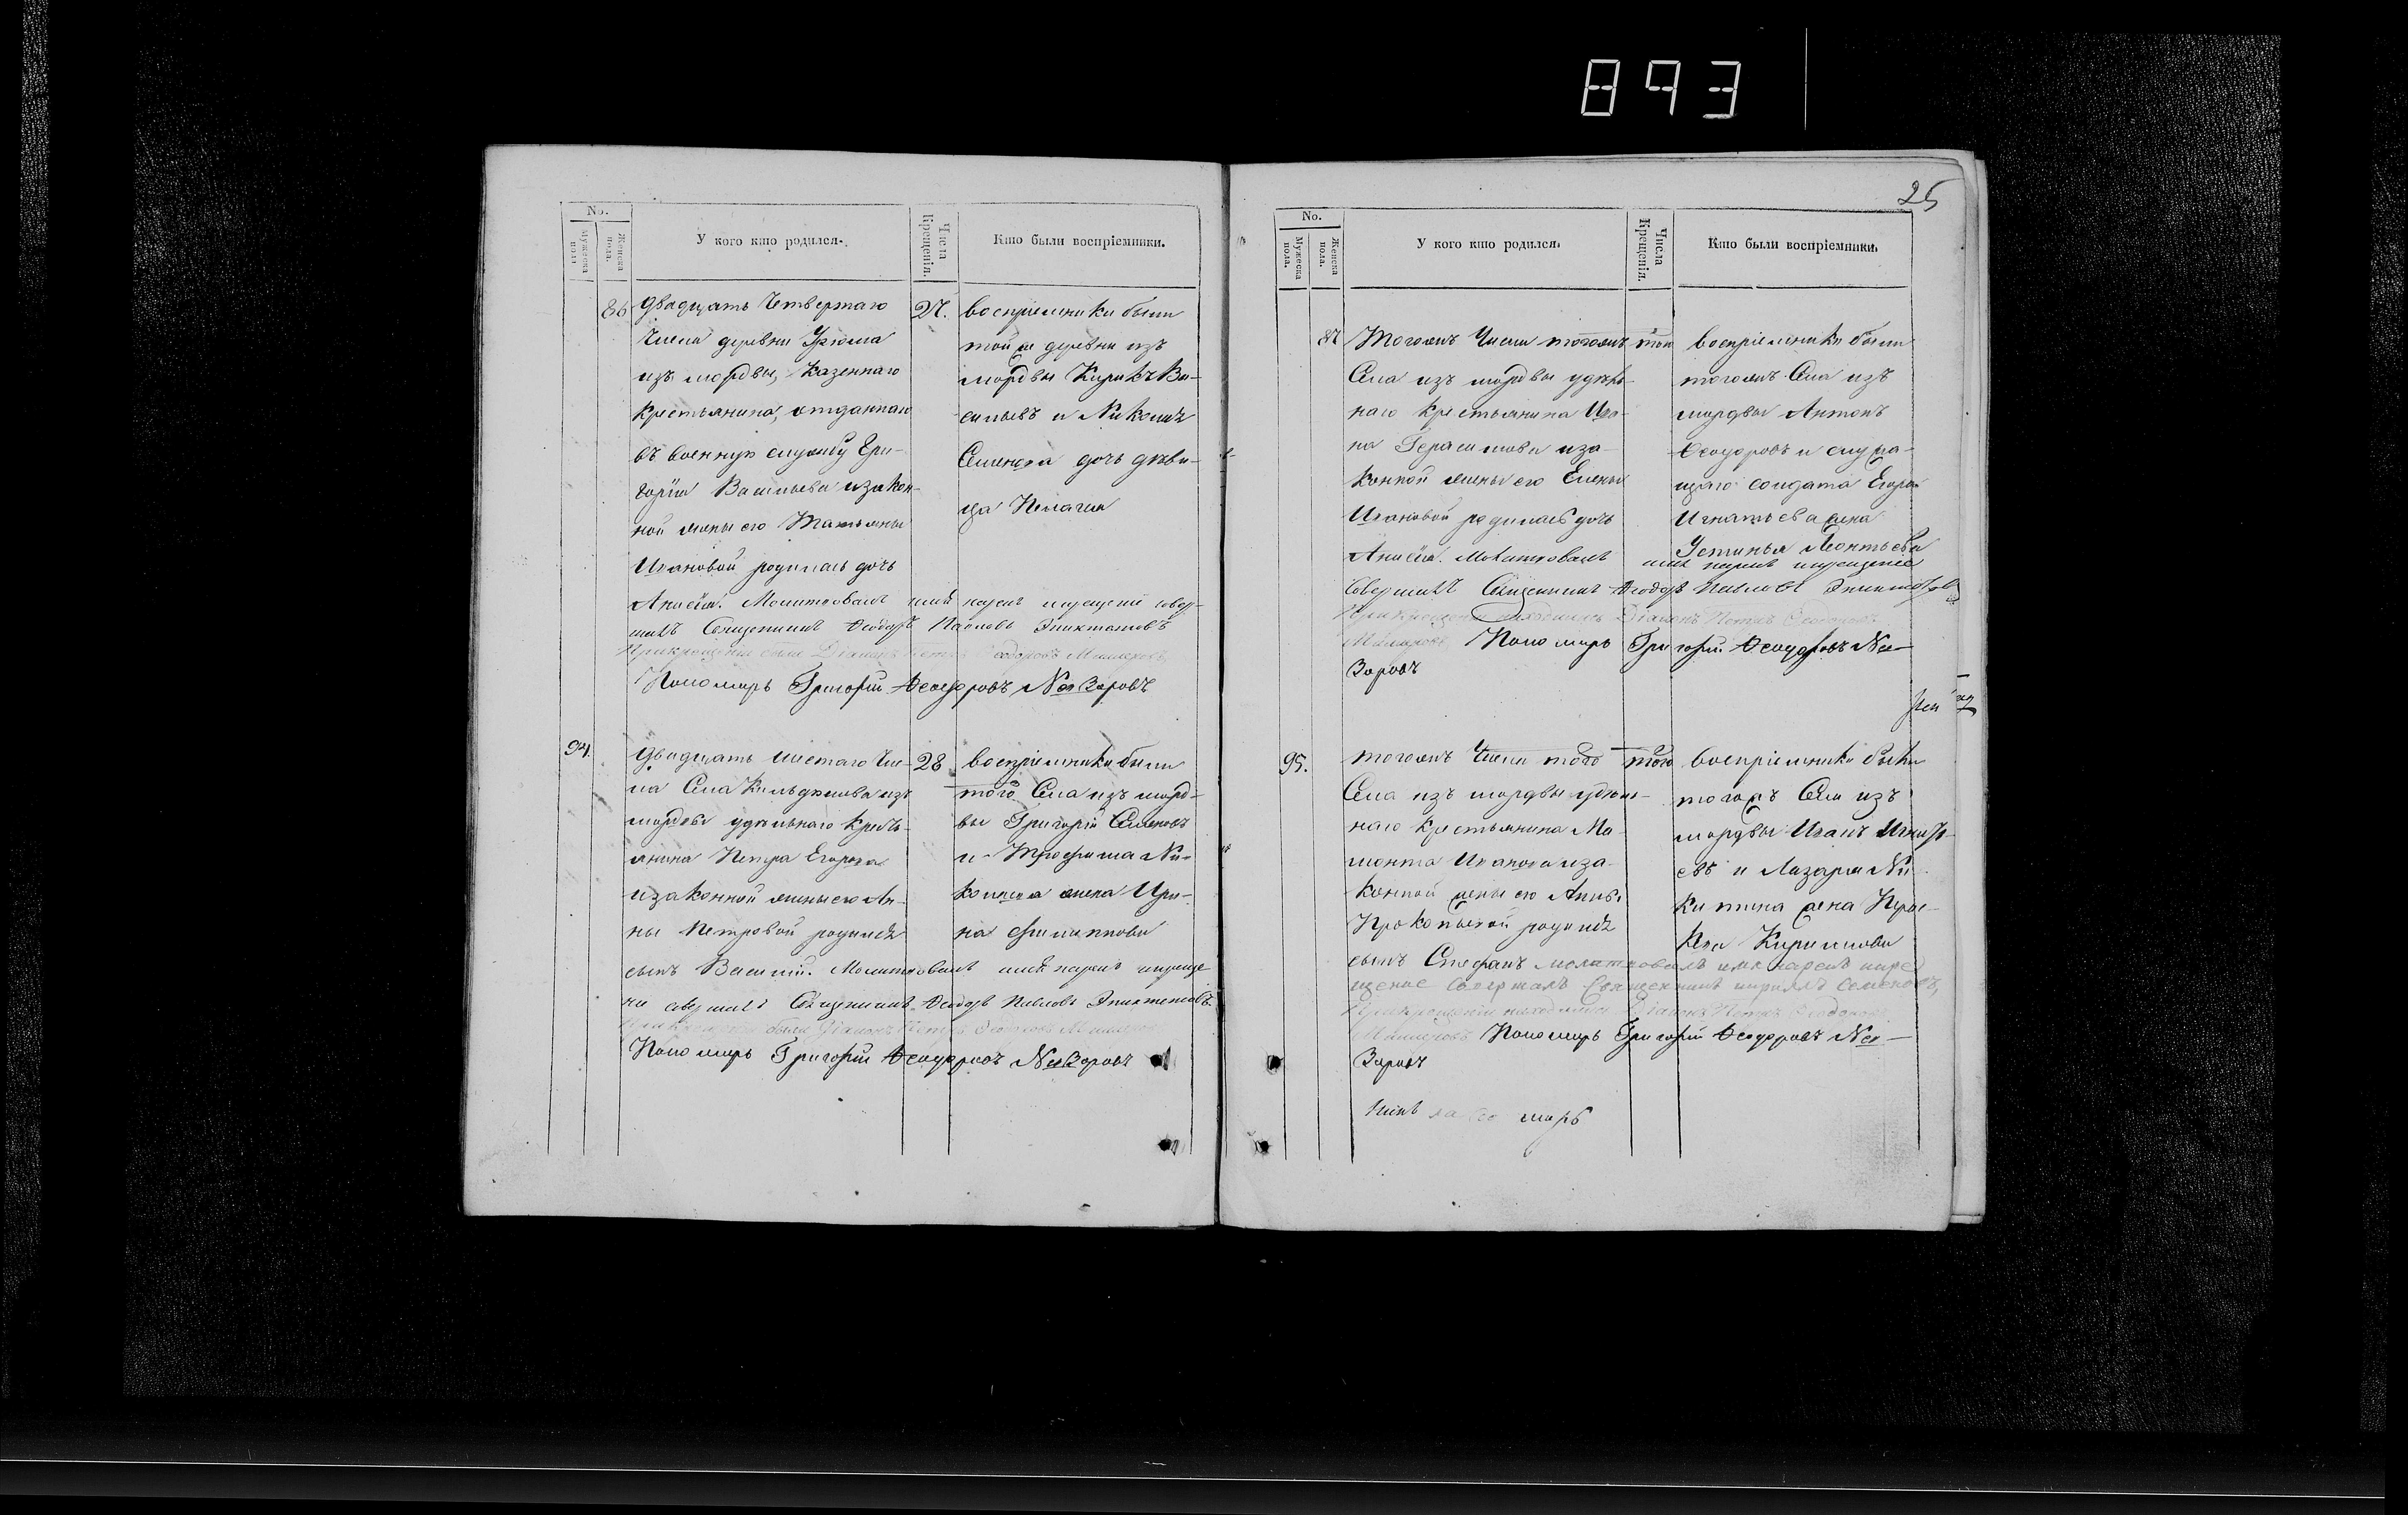 893
No.
Мужеска пола
Женска пола.
У кого кто родился.
Числа Крещенія.
Кто были воспріемники.
86 Двадцать Четвертаго
Числа деревни Урюма
изъ мордвы, Казеннаго
Крестьянина, отданнаго
въ военную службу Гри-
горія Васильева и закон-
ной жены его Татьяны
Ивановой родилась дочь
Анисія. Молитвовалъ имя нарекъ и крещеніе совер-
шилъ Священникъ Ѳеодоръ Павловъ Эпиктетовъ
При крещеніи были Діаконъ Петръ Ѳеодоровъ
Пономарь Григорій Ѳеодоровъ Невзоровъ
27.
воспріемники были
той же деревни изъ
мордвы Кирикъ Ва-
сильевъ и
Семенова дочь дѣви-
ца Пелагея
94. Двадцать шестаго Чис-
ла Села Кильдюшова изъ
мордвы удѣльнаго Крест-
янина Петра Егорова
и законной жены его Ан-
ны Петровой родился
сынъ Василій. Молитвовалъ имя нарекъ и креще-
ніе совершилъ Священникъ Ѳеодоръ Павловъ Эпиктетовъ.
При крещеніи были Діаконъ Петръ Ѳеодоровъ
Пономарь Григорій Ѳеодоровъ Невзоровъ
28
воспріемники были
того Села изъ морд-
вы Григорій Семеновъ
и Трофима Ни-
колаева жена Ири-
на Филиппова
25
No.
Мужеска пола.
Женска пола.
У кого кто родился.
Числа Крещенія.
Кто были воспріемники.
87 Тогожъ Числа тогожъ
Села изъ мордвы удѣль-
наго Крестьянина Ива-
на Герасимова и за-
конной жены его Елены
Ивановой родилась дочь
Анисія. Молитвовалъ имя нарекъ и крещеніе
Совершилъ Священникъ Ѳеодоръ Павловъ Эпиктетовъ
При крещеніи находились Діаконъ Петръ Ѳеодоровъ
Пономарь Григорій Ѳеодоровъ Нев-
зоровъ
воспріемники были
тогожъ Села изъ
мордвы Антонъ
Ѳеодоровъ и служа-
щаго солдата Егора
Игнатьева жена
Устинья Леонтьева
95. тогожъ Числа того
Села изъ мордвы удѣль-
наго Крестьянина Ма-
монта Иванова и за-
конной жены его Анны
Прокопьевой родился
сынъ Стефанъ молитвовалъ имя нарекъ и кре-
щеніе совершалъ Священникъ Кириллъ Семеновъ,
При крещеніи находились Діаконъ Петръ Ѳеодоровъ
Пономарь Григорій Ѳеодоровъ Нев-
зоровъ
того
воспріемники были
тогожъ Села изъ
мордвы Иванъ
евъ и Лазаря Ни-
китина жена Прас-
ковья Кириллова